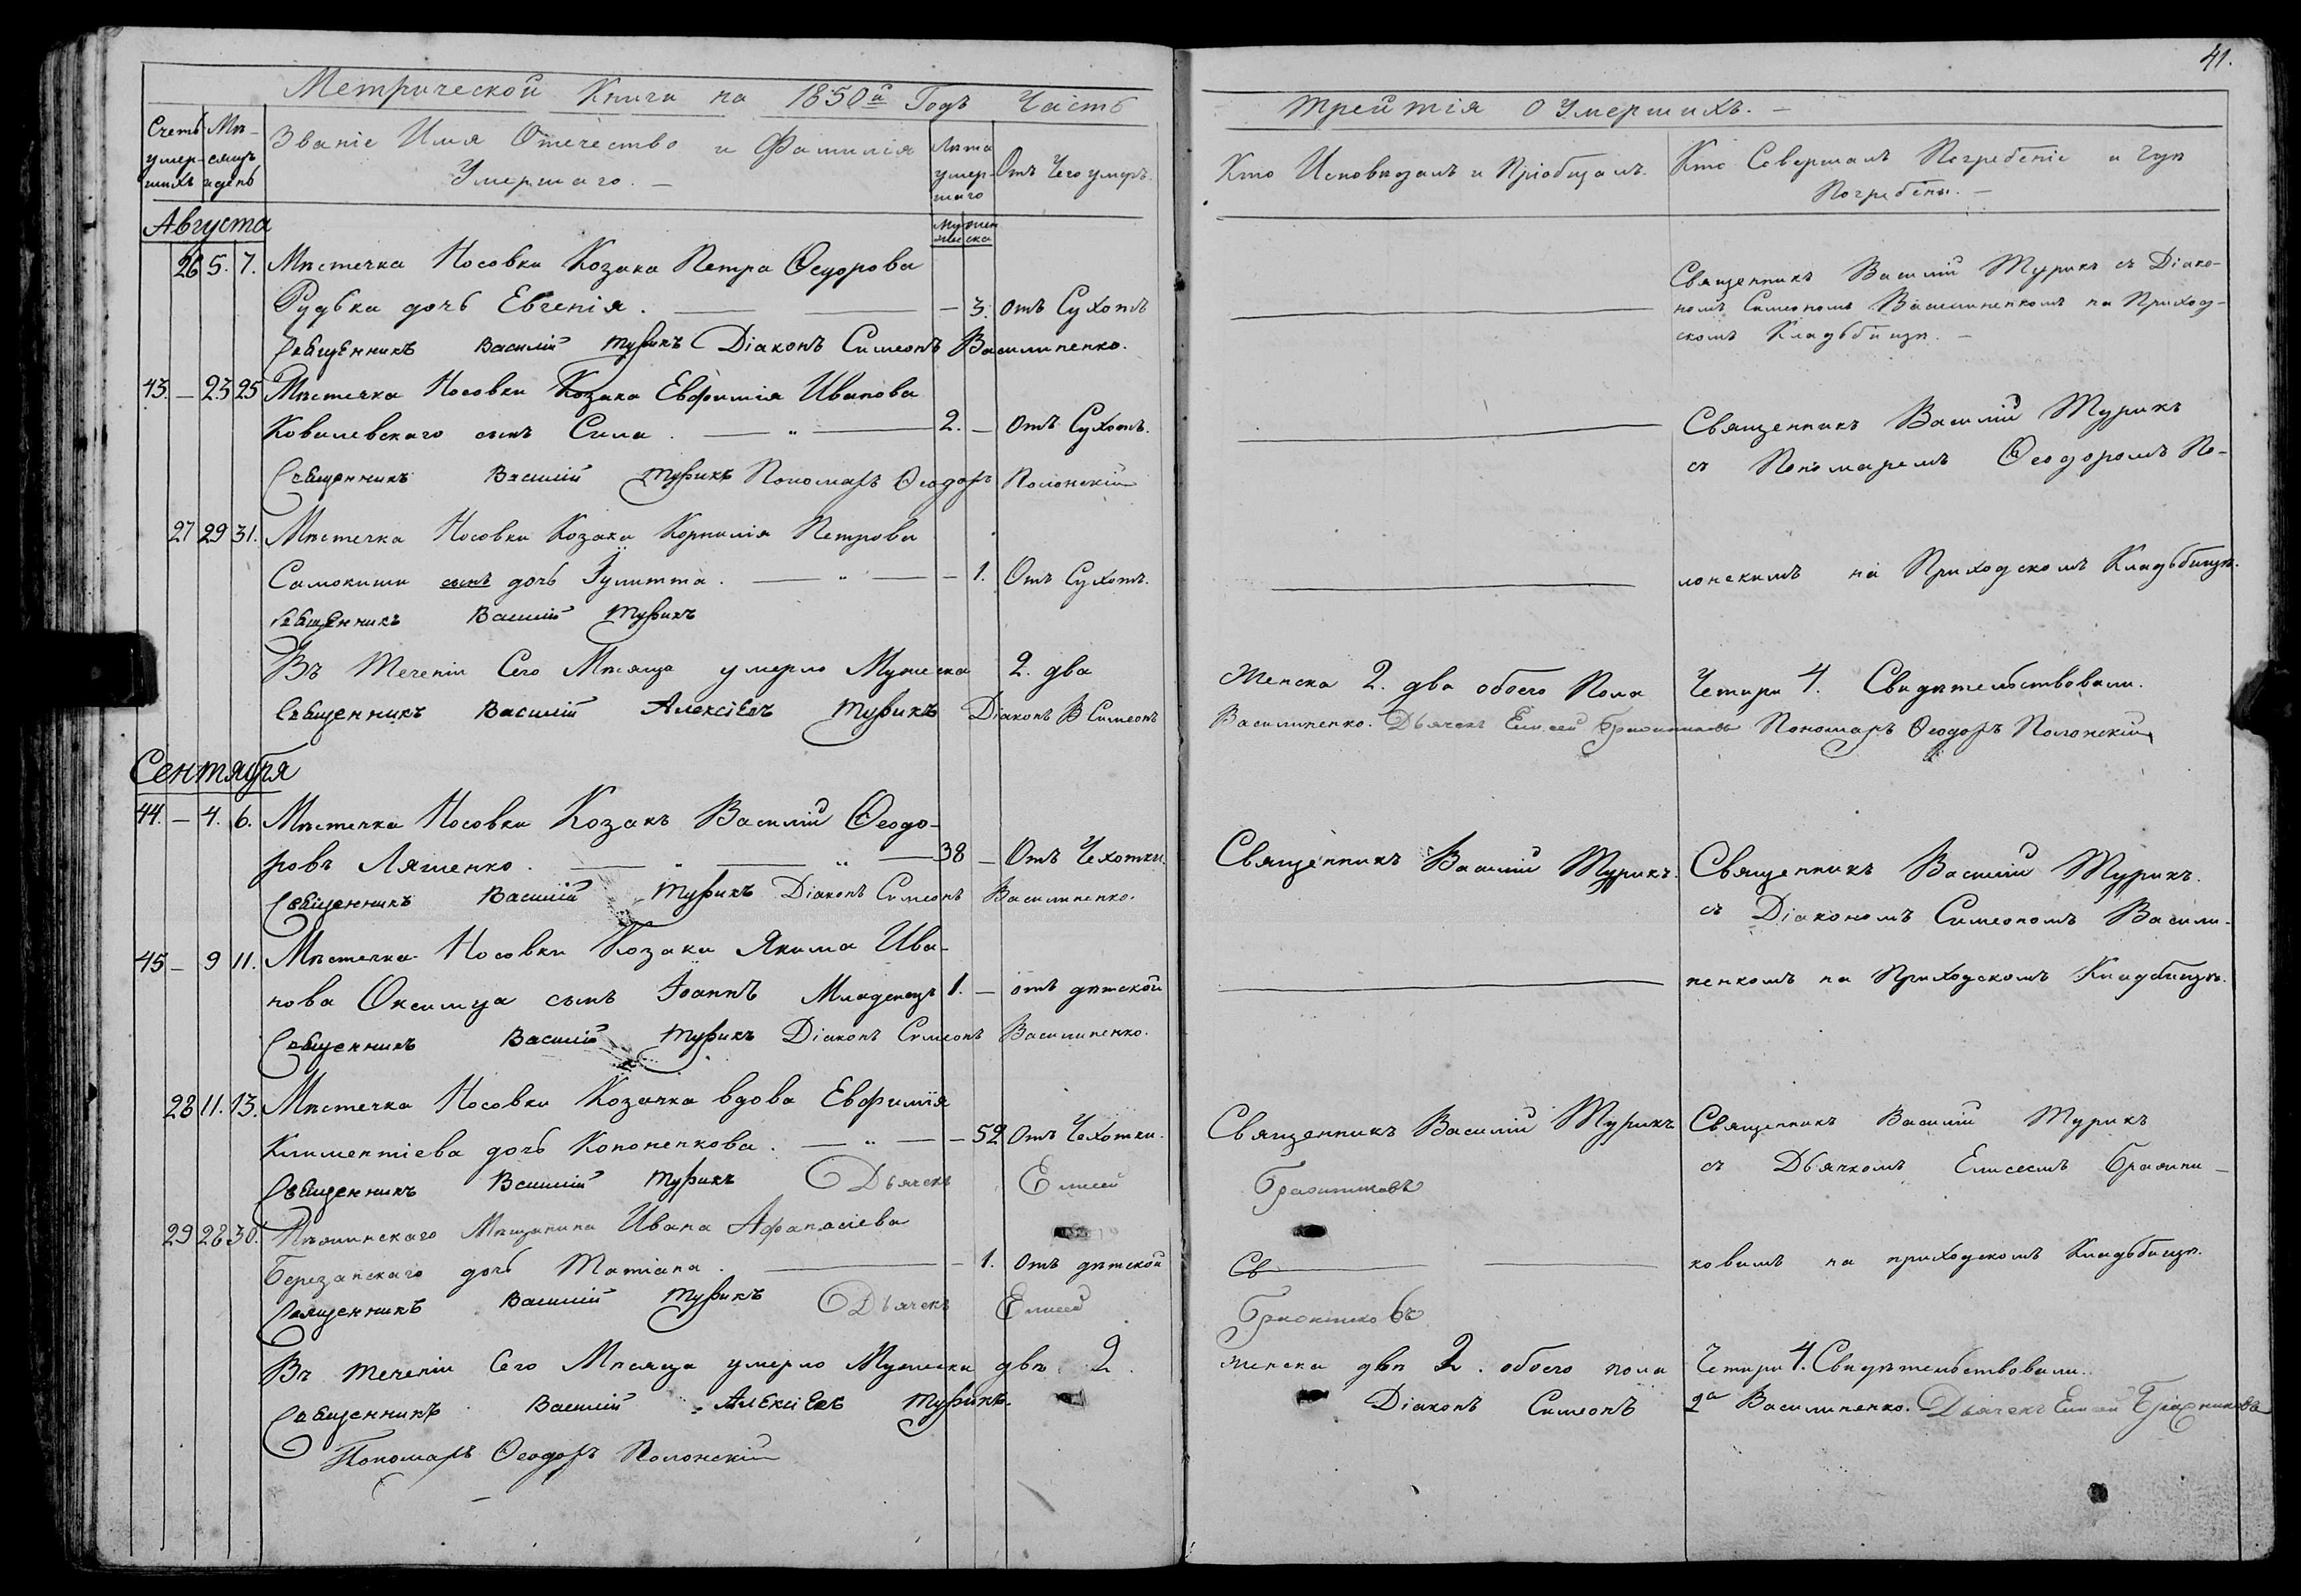 41.
Метрической Книги на 1850й Годъ Часть
третія о Умершихъ. —
Счетъ умер-шихъ
Мѣ-сяцъ и день
Званіе Имя Отечество и Фамилія
Умершаго. —
Лѣта умер-шаго
Отъ Чего умеръ.
Кто Исповѣдалъ и Пріобщалъ.
Кто Совершалъ Погребеніе и гдѣ
Погребены. —
Августа
26 5. 7. Мѣстечка Носовки Козака Петра Ѳедорова
Рудька дочь Евгенія. — 3. отъ Сухотъ
Священникъ Василій Турикъ Діаконъ Симеонъ Василиненко.
Священникъ Василій Турикъ съ Діако-
номъ Симеономъ Василиненкомъ на Приход-
скомъ Кладбищѣ. —
43. — 23 25 Мѣстечка Носовки Козака Евфимія Иванова
Ковалевскаго сынъ Сила. — 2. — Отъ Сухотъ.
Священникъ Василій Турикъ Пономарь Ѳеодоръ Полонскій
Священникъ Василій Турикъ
съ Пономаремъ Ѳеодоромъ По-
27 29 31. Мѣстечка Носовки Козака Корнилія Петрова
Самокиши сынъ дочь Іулитта. — 1. Отъ Сухотъ.
лонскимъ на Приходскомъ Кладбищѣ.
Священникъ Василій Турикъ
Въ теченіи Сего Мѣсяца умерло Мужеска 2. два
Женска 2. два обоего Пола Четыри 4. Свидѣтельствовали.
Священникъ Василій Алексіевъ Турикъ Діаконъ Симеонъ
Василиненко. Дьячекъ Елисей Пономарь Ѳеодоръ Полонскій
Сентября
44. — 4. 6. Мѣстечка Носовки Козакъ Василій Ѳеодо-
ровъ Ляшенко. — 38 — Отъ Чахотки.
Священникъ Василій Турикъ.
Священникъ Василій Турикъ Діаконъ Симеонъ Василиненко.
Священникъ Василій Турикъ.
съ Діакономъ Симеономъ Васили-
45 — 9 11. Мѣстечка Носовки Козака Якима Ива-
нова Оксимца сынъ Іоаннъ Младенецъ 1. — отъ дѣтской
ненкомъ на Приходскомъ Кладбищѣ.
Священникъ Василій Турикъ Діаконъ Симеонъ Василиненко.
28 11. 13. Мѣстечка Носовки Козачка вдова Евфимія
Климентіева дочь Кононенкова. — 52 Отъ Чахотки.
Священникъ Василій Турикъ
Священникъ Василій Турикъ
съ Дьячкомъ Елисеемъ
Священникъ Василій Турикъ Дьячекъ Елисей
29 28 30. Нѣжинскаго Мѣщанина Ивана Афанасіева
Березанскаго дочь Татіана. — 1. Отъ дѣтской
Св
ковымъ на приходскомъ Кладбищѣ.
Священникъ Василій Турикъ Дьячекъ Елисей
Въ теченіи Сего Мѣсяца умерло Мужеска двѣ 2.
женска двѣ 2. обоего пола Четыри 4. Свидѣтельствовали.
Священникъ Василій Алексіевъ Турикъ.
Діаконъ Симеонъ Василиненко. Дьячекъ Елисей
Пономарь Ѳеодоръ Полонскій